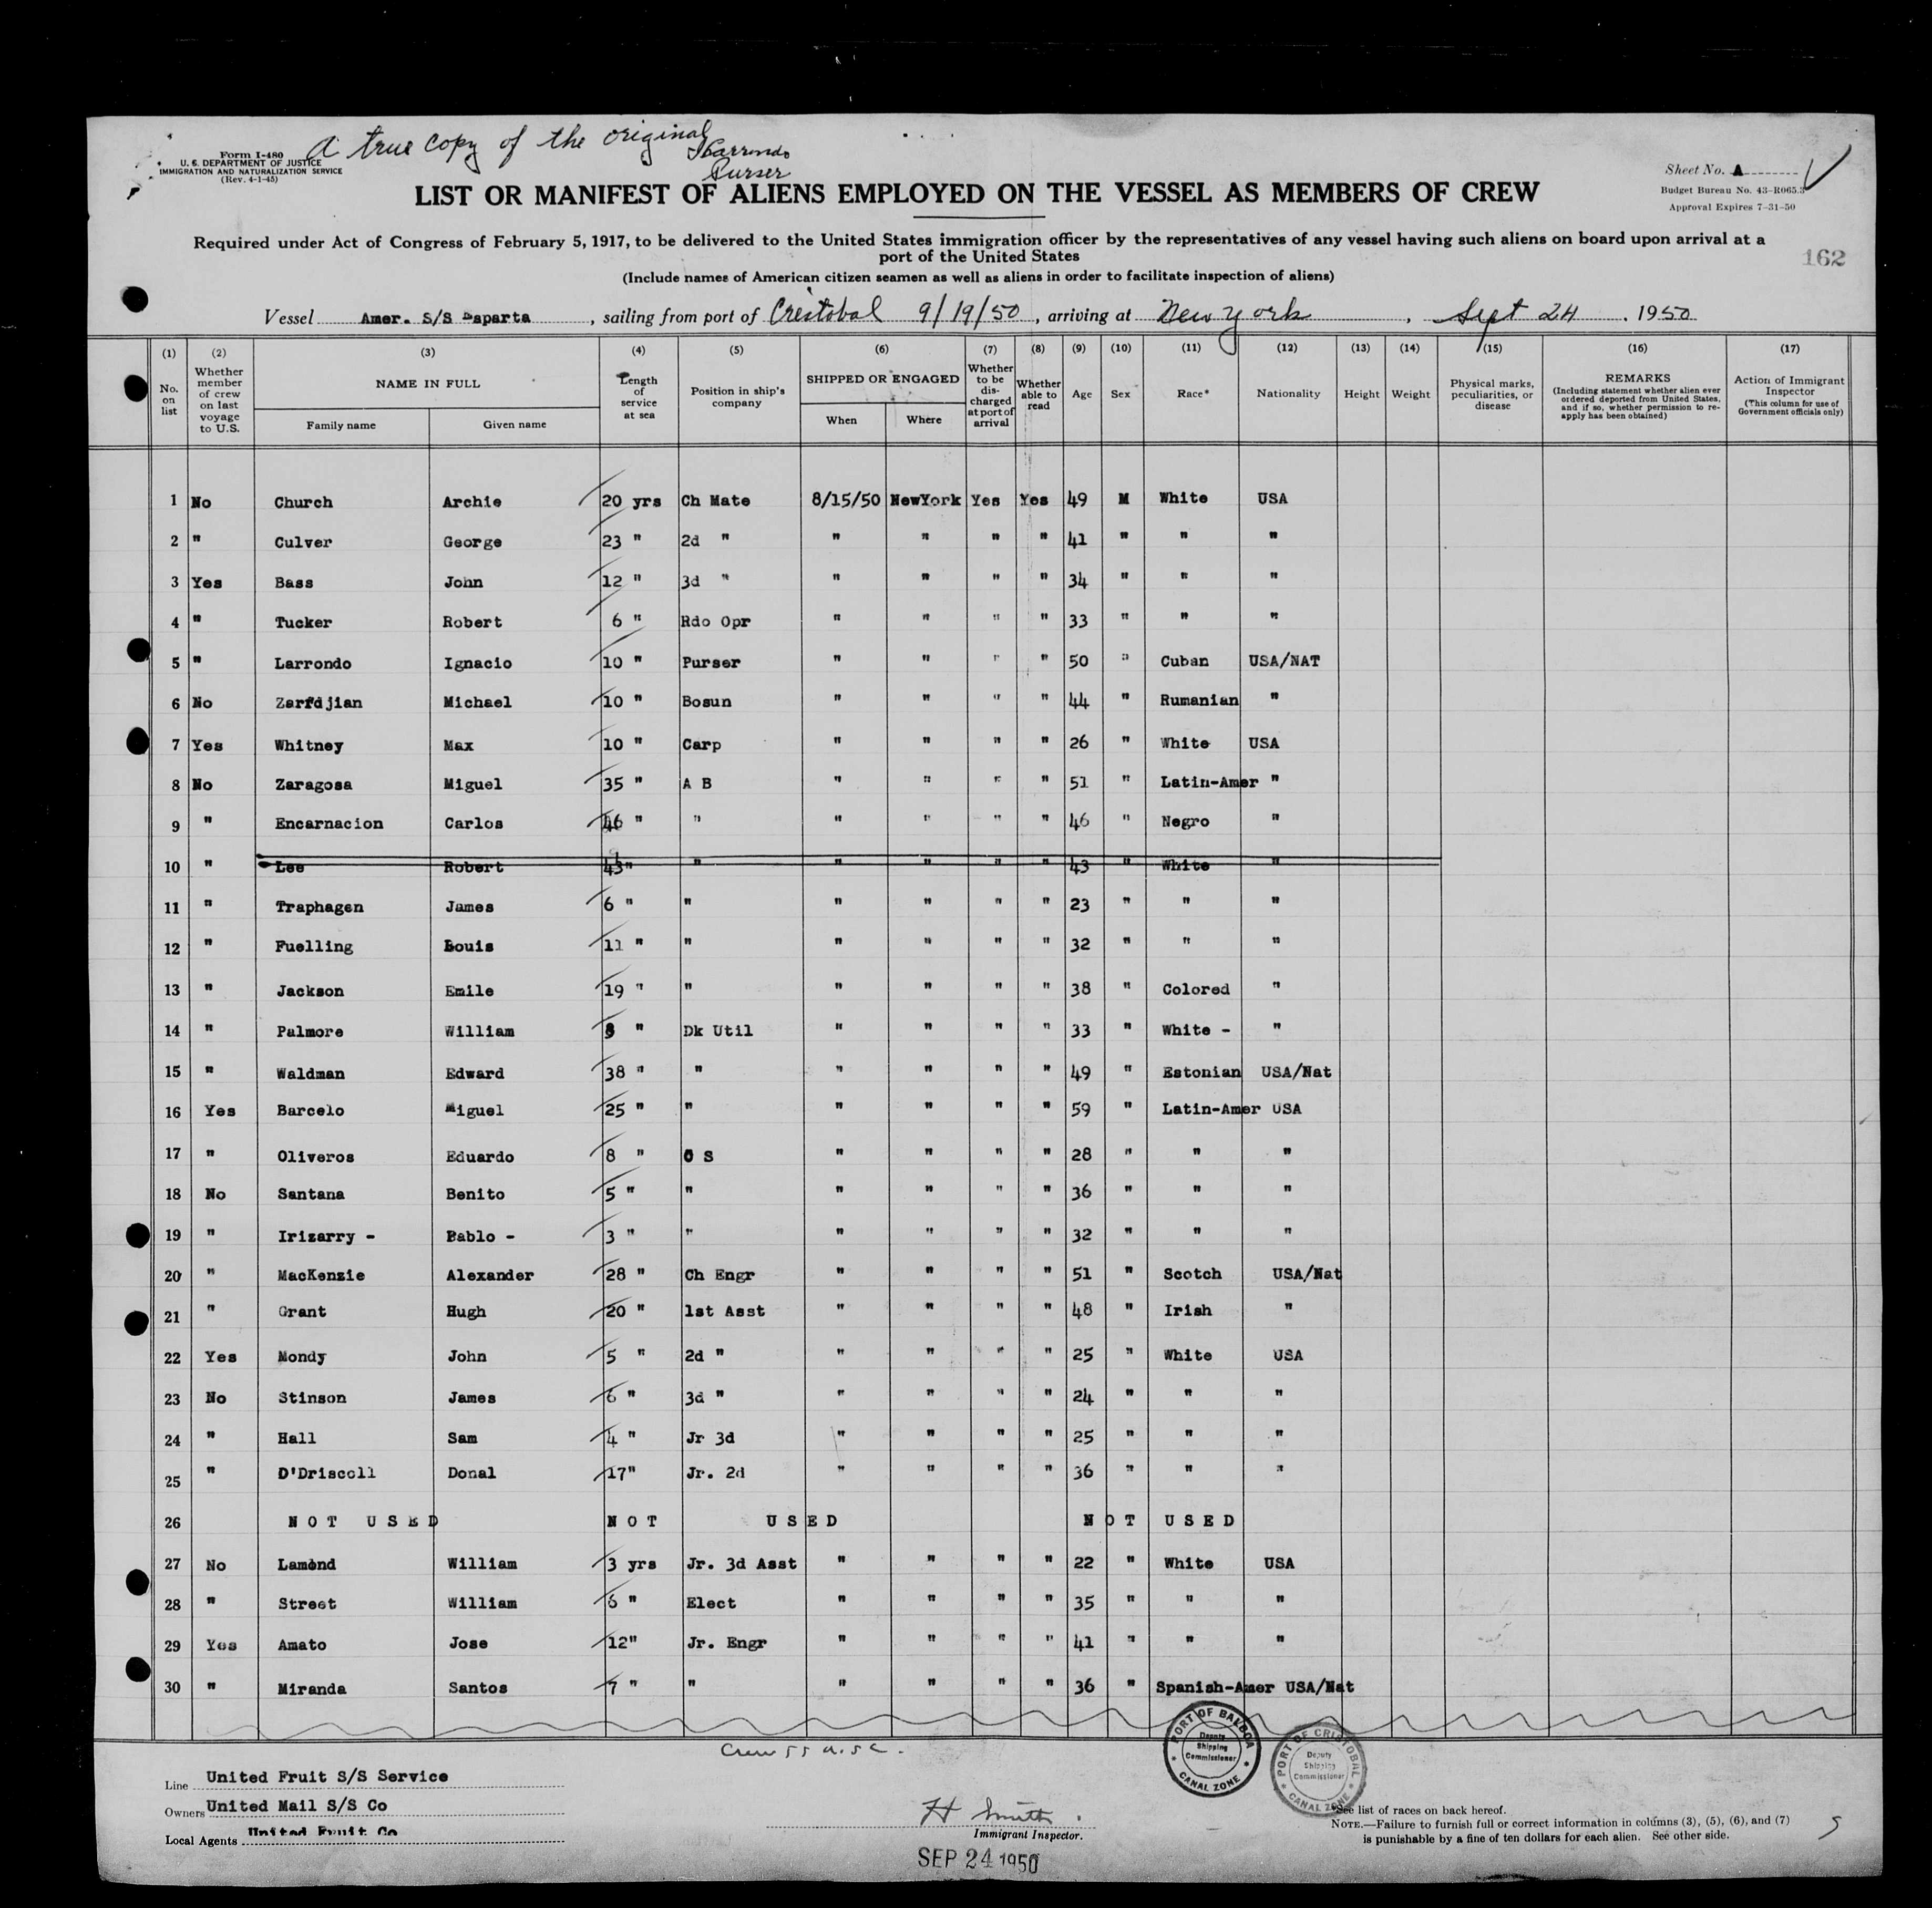 A true copy of the original
Purser
Form I-480
U. S. DEPARTMENT OF JUSTICE
IMMIGRATION AND NATURALIZATION SERVICE
(Rev. 4-1-45)
Sheet No. A
Budget Bureau No. 43-R065.3
Approval Expires 7-31-50
LIST OR MANIFEST OF ALIENS EMPLOYED ON THE VESSEL AS MEMBERS OF CREW
Required under Act of Congress of February 5, 1917, to be delivered to the United States immigration officer by the representatives of any vessel having such aliens on board upon arrival at a
port of the United States
162
(Include names of American citizen seamen as well as aliens in order to facilitate inspection of aliens)
Vessel Amer. S/S Esparta, sailing from port of Cristobal 9/19/50, arriving at New York, Sept 24, 1950
(1) (2) (3) (4) (5) (6) (7) (8) (9) (10) (11) (12) (13) (14) (15) (16) (17)
No. on list
Whether member of crew on last voyage to U.S.
NAME IN FULL
Family name
Given name
Length of service at sea
Position in ship's company
SHIPPED OR ENGAGED
When
Where
Whether to be discharged at port of arrival
Whether able to read
Age
Sex
Race*
Nationality
Height
Weight
Physical marks, peculiarities, or disease
REMARKS
(Including statement whether alien ever ordered deported from United States, and if so, whether permission to re-apply has been obtained)
Action of Immigrant Inspector
(This column for use of Government officials only)
1 No Church Archie 20 yrs Ch Mate 8/15/50 NewYork Yes Yes 49 M White USA
2 " Culver George 23 " 2d " " " " " 41 " " "
3 Yes Bass John 12 " 3d " " " " " 34 " " "
4 " Tucker Robert 6 " Rdo Opr " " " " 33 " " "
5 " Larrondo Ignacio 10 " Purser " " " " 50 " Cuban USA/NAT
6 No Zarfdjian Michael 10 " Bosun " " " " 44 " Rumanian "
7 Yes Whitney Max 10 " Carp " " " " 26 " White USA
8 No Zaragosa Miguel 35 " A B " " " " 51 " Latin-Amer "
9 " Encarnacion Carlos 46 " " " " " " 46 " Negro "
10 " Lee Robert 43" " " " " 43 " White "
11 " Traphagen James 6 " " " " " " 23 " " "
12 " Fuelling Louis 11 " " " " " " 32 " " "
13 " Jackson Emile 19 " " " " " " 38 " Colored "
14 " Palmore William 8 " Dk Util " " " " 33 " White - "
15 " Waldman Edward 38 " " " " " " 49 " Estonian USA/Nat
16 Yes Barcelo Miguel 25 " " " " " " 59 " Latin-Amer USA
17 " Oliveros Eduardo 8 " O S " " " " 28 " " "
18 No Santana Benito 5 " " " " " " 36 " " "
19 " Irizarry - Pablo - 3 " " " " " " 32 " " "
20 " MacKenzie Alexander 28 " Ch Engr " " " " 51 " Scotch USA/Nat
21 " Grant Hugh 20 " 1st Asst " " " " 48 " Irish "
22 Yes Mondy John 5 " 2d " " " " " 25 " White USA
23 No Stinson James 6 " 3d " " " " " 24 " " "
24 " Hall Sam 4 " Jr 3d " " " " 25 " " "
25 " D'Driscoll Donal 17" Jr. 2d " " " " 36 " " "
26 NOT USED NOT USED NOT USED
27 No Lamond William 3 yrs Jr. 3d Asst " " " " 22 " White USA
28 " Street William 6 " Elect " " " " 35 " " "
29 Yes Amato Jose 12" Jr. Engr " " " " 41 " " "
30 " Miranda Santos 7 " " " " " " 36 " Spanish-Amer USA/Nat
PORT OF BALBOA
Deputy Shipping Commissioner
CANAL ZONE
PORT OF CRISTOBAL
Deputy Shipping Commissioner
CANAL ZONE
Line United Fruit S/S Service
Owners United Mail S/S Co
Local Agents United Fruit Co
H Smith
Immigrant Inspector.
SEP 24 1950
*See list of races on back hereof.
NOTE.—Failure to furnish full or correct information in columns (3), (5), (6), and (7)
is punishable by a fine of ten dollars for each alien. See other side.